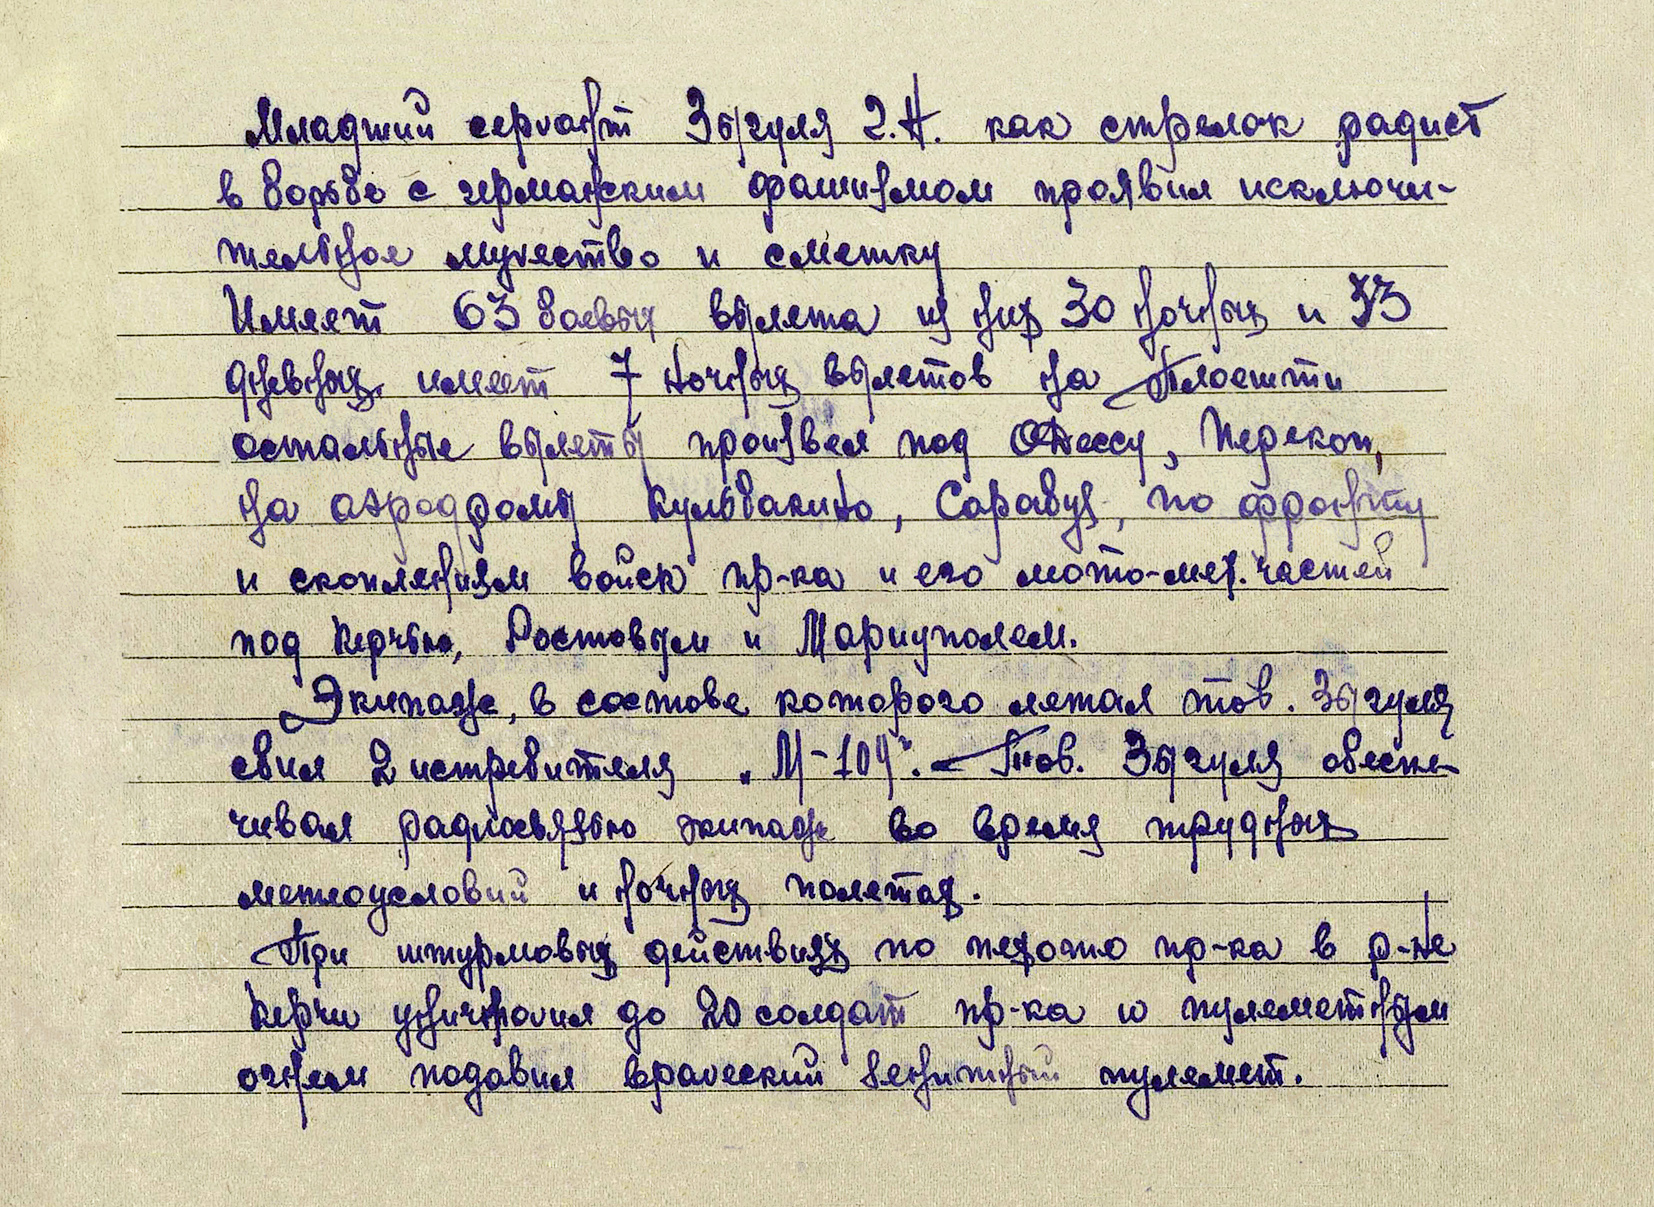 Младший сержант Збгуля Г.Н. как стрелок радист
в борьбе с германским фашизмом проявил исключи-
тельное мужество и сметку
Имеет 63 боевых вылета из них 30 ночных и 33
дневных, имеет 7 ночных вылетов на Плоешти
остальные вылеты произвел под Одессу, Перекоп,
на аэродромы Кульбакино, Сарабуз, по фронту
и скоплениям войск пр-ка и его мото-мех. частей
под Керчью, Ростовым и Мариуполем.
Экипаж, в составе которого летал тов. Збгуля
сбил 2 истребителя „М-109". Тов. Збгуля обеспе-
чивал радиосвязью экипаж во время трудных
метеоусловий и ночных полетах.
При штурмовых действиях по пехоте пр-ка в р-не
Керчи уничтожил до 20 солдат пр-ка и пулеметным
огнем подавил вражеский зенитный пулемет.